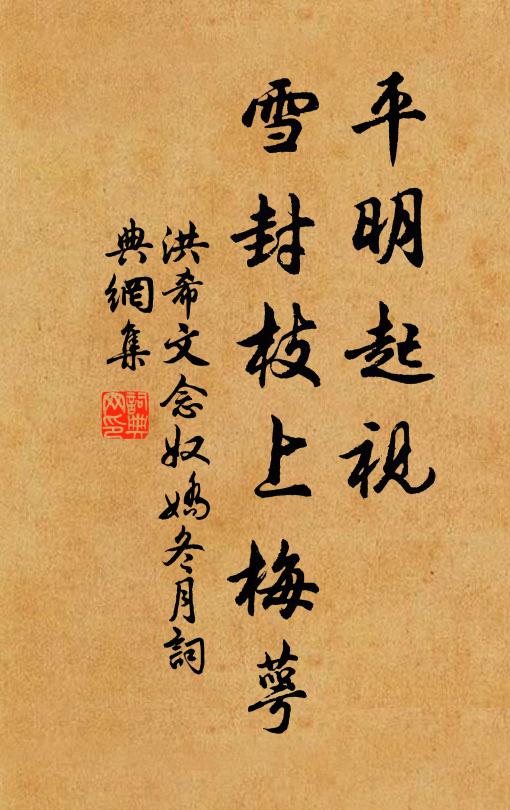 平明起視
雪封枝上梅萼
洪希文念奴嬌冬月詞
典網集
詞典網印